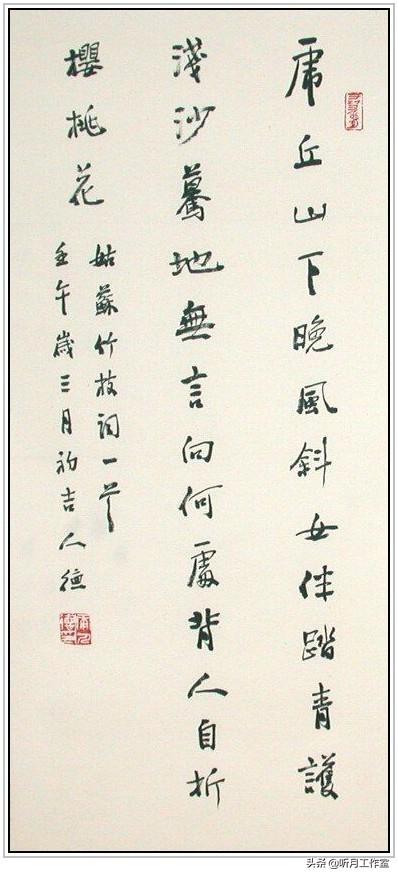 虎丘山下晚風斜女伴踏青護
淺沙驀地無言向何處背人自折
櫻桃花
姑蘇竹枝詞一首
壬午歲三月初吉人德
头条 @听月工作室